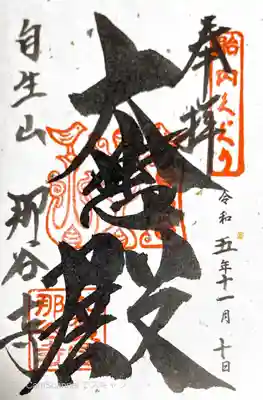 胎内くぐり
奉拝
令和五年十一月十日
大悲殿
自生山 那谷寺
CamScanner でスキャン